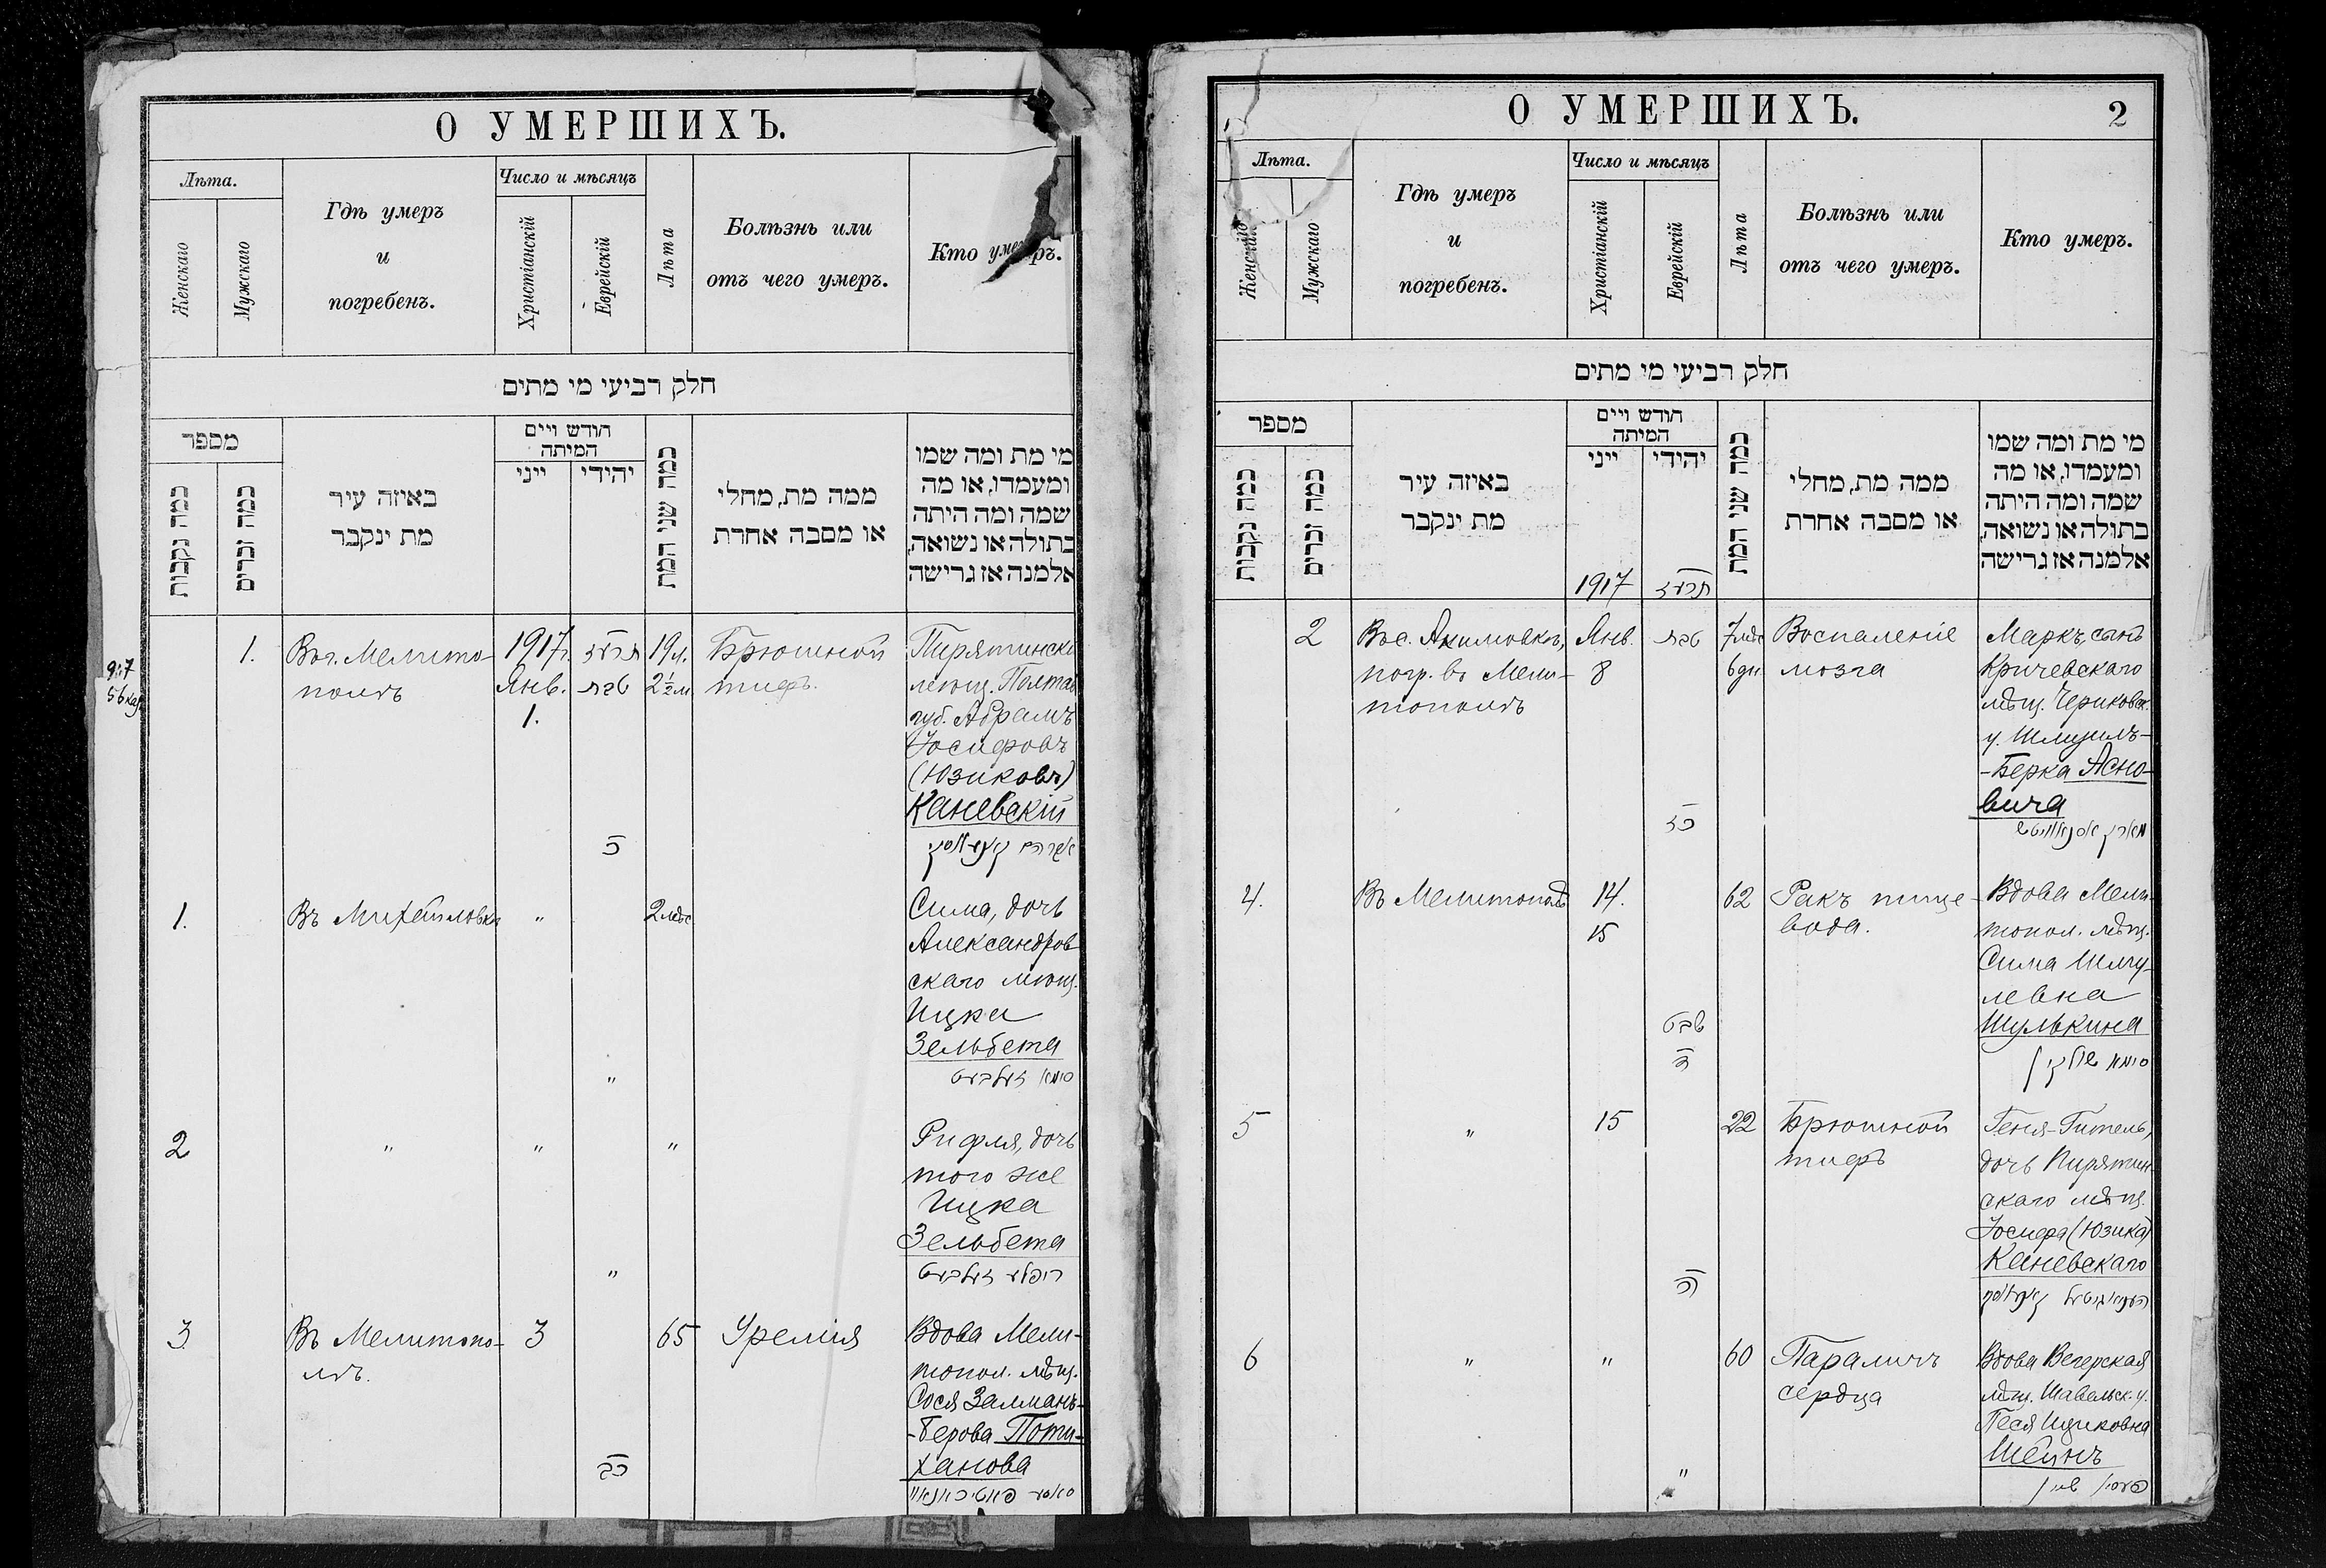 О УМЕРШИХЪ.
Лѣта.
Женскаго
Мужскаго
Гдѣ умеръ
и
погребенъ.
Число и мѣсяцъ
Христіанскій
Еврейскій
Лѣта
Болѣзнь или
отъ чего умеръ.
Кто умеръ.
חלק רביעי מי מתים
מספר
כמה נקבות
כמה זכרים
באיזה עיר
מת ינקבר
חודש ויים
המיתה
ייני
יהידי
כמה שני המת
ממה מת, מחלי
או מסבה אחרת
מי מת ומה שמו
ומעמדו, או מה
שמה ומה היתה
בתולה או נשואה,
אלמנה אז גרישה
1.
Въ г. Мелито-
полѣ
1917 г.
Янв.
1.
תרעז
טבת
כ
19 л.
2½ м.
Брюшной
тифъ.
Пирятинскі
мѣщ. Полтав
губ. Абрамъ
Іосифовъ
(Юзиковъ)
Каневскій
1.
Въ Михайловкѣ
"
"
2 мѣс
Сима, дочь
Александров
скаго мѣщ.
Ицка
Зельбета
סימא זעלבעט
2
"
"
"
"
Рифля, дочь
того же
Ицка
Зельбета
ריפלע זעלבעט
3
Въ Мелитопо-
лѣ.
3
כב
65
Уремія
Вдова Мели-
топол. мѣщ.
Сося Залманъ-
-Берова Поти-
ханова
О УМЕРШИХЪ.
2
Лѣта.
Женскаго
Мужскаго
Гдѣ умеръ
и
погребенъ.
Число и мѣсяцъ
Христіанскій
Еврейскій
Лѣта
Болѣзнь или
отъ чего умеръ.
Кто умеръ.
חלק רביעי מי מתים
מספר
כמה נקבות
כמה זכרים
באיזה עיר
מת ינקבר
חודש ויים
המיתה
ייני
יהידי
כמה שני המת
ממה מת, מחלי
או מסבה אחרת
מי מת ומה שמו
ומעמדו, או מה
שמה ומה היתה
בתולה או נשואה,
אלמנה אז גרישה
1917
תרעז
2
Въ с. Акимовкѣ,
погр. въ Мели-
тополѣ
Янв.
8
טבת
כז
7 мѣс
6 дн.
Воспаленіе
мозга
Маркъ, сынъ
Кричевскаго
мѣщ. Чериковск.
у. Шмуилъ-
-Берка Асно-
вича
4.
Въ Мелитополѣ
14.
15
שבט
ד
62
Ракъ пище-
вода.
Вдова Мели-
топол. мѣщ.
Сима Шму-
левна
Шулькина
סימא שולקין
5
"
15
ה
22
Брюшной
тифъ
Геня-Гитель,
дочь Пирятин-
скаго мѣщ.
Іосифа (Юзика)
Каневскаго
6
"
"
"
60
Параличъ
сердца
Вдова Вегерская
мѣщ. Шавельск. у.
Песя Ициковна
Шейнъ